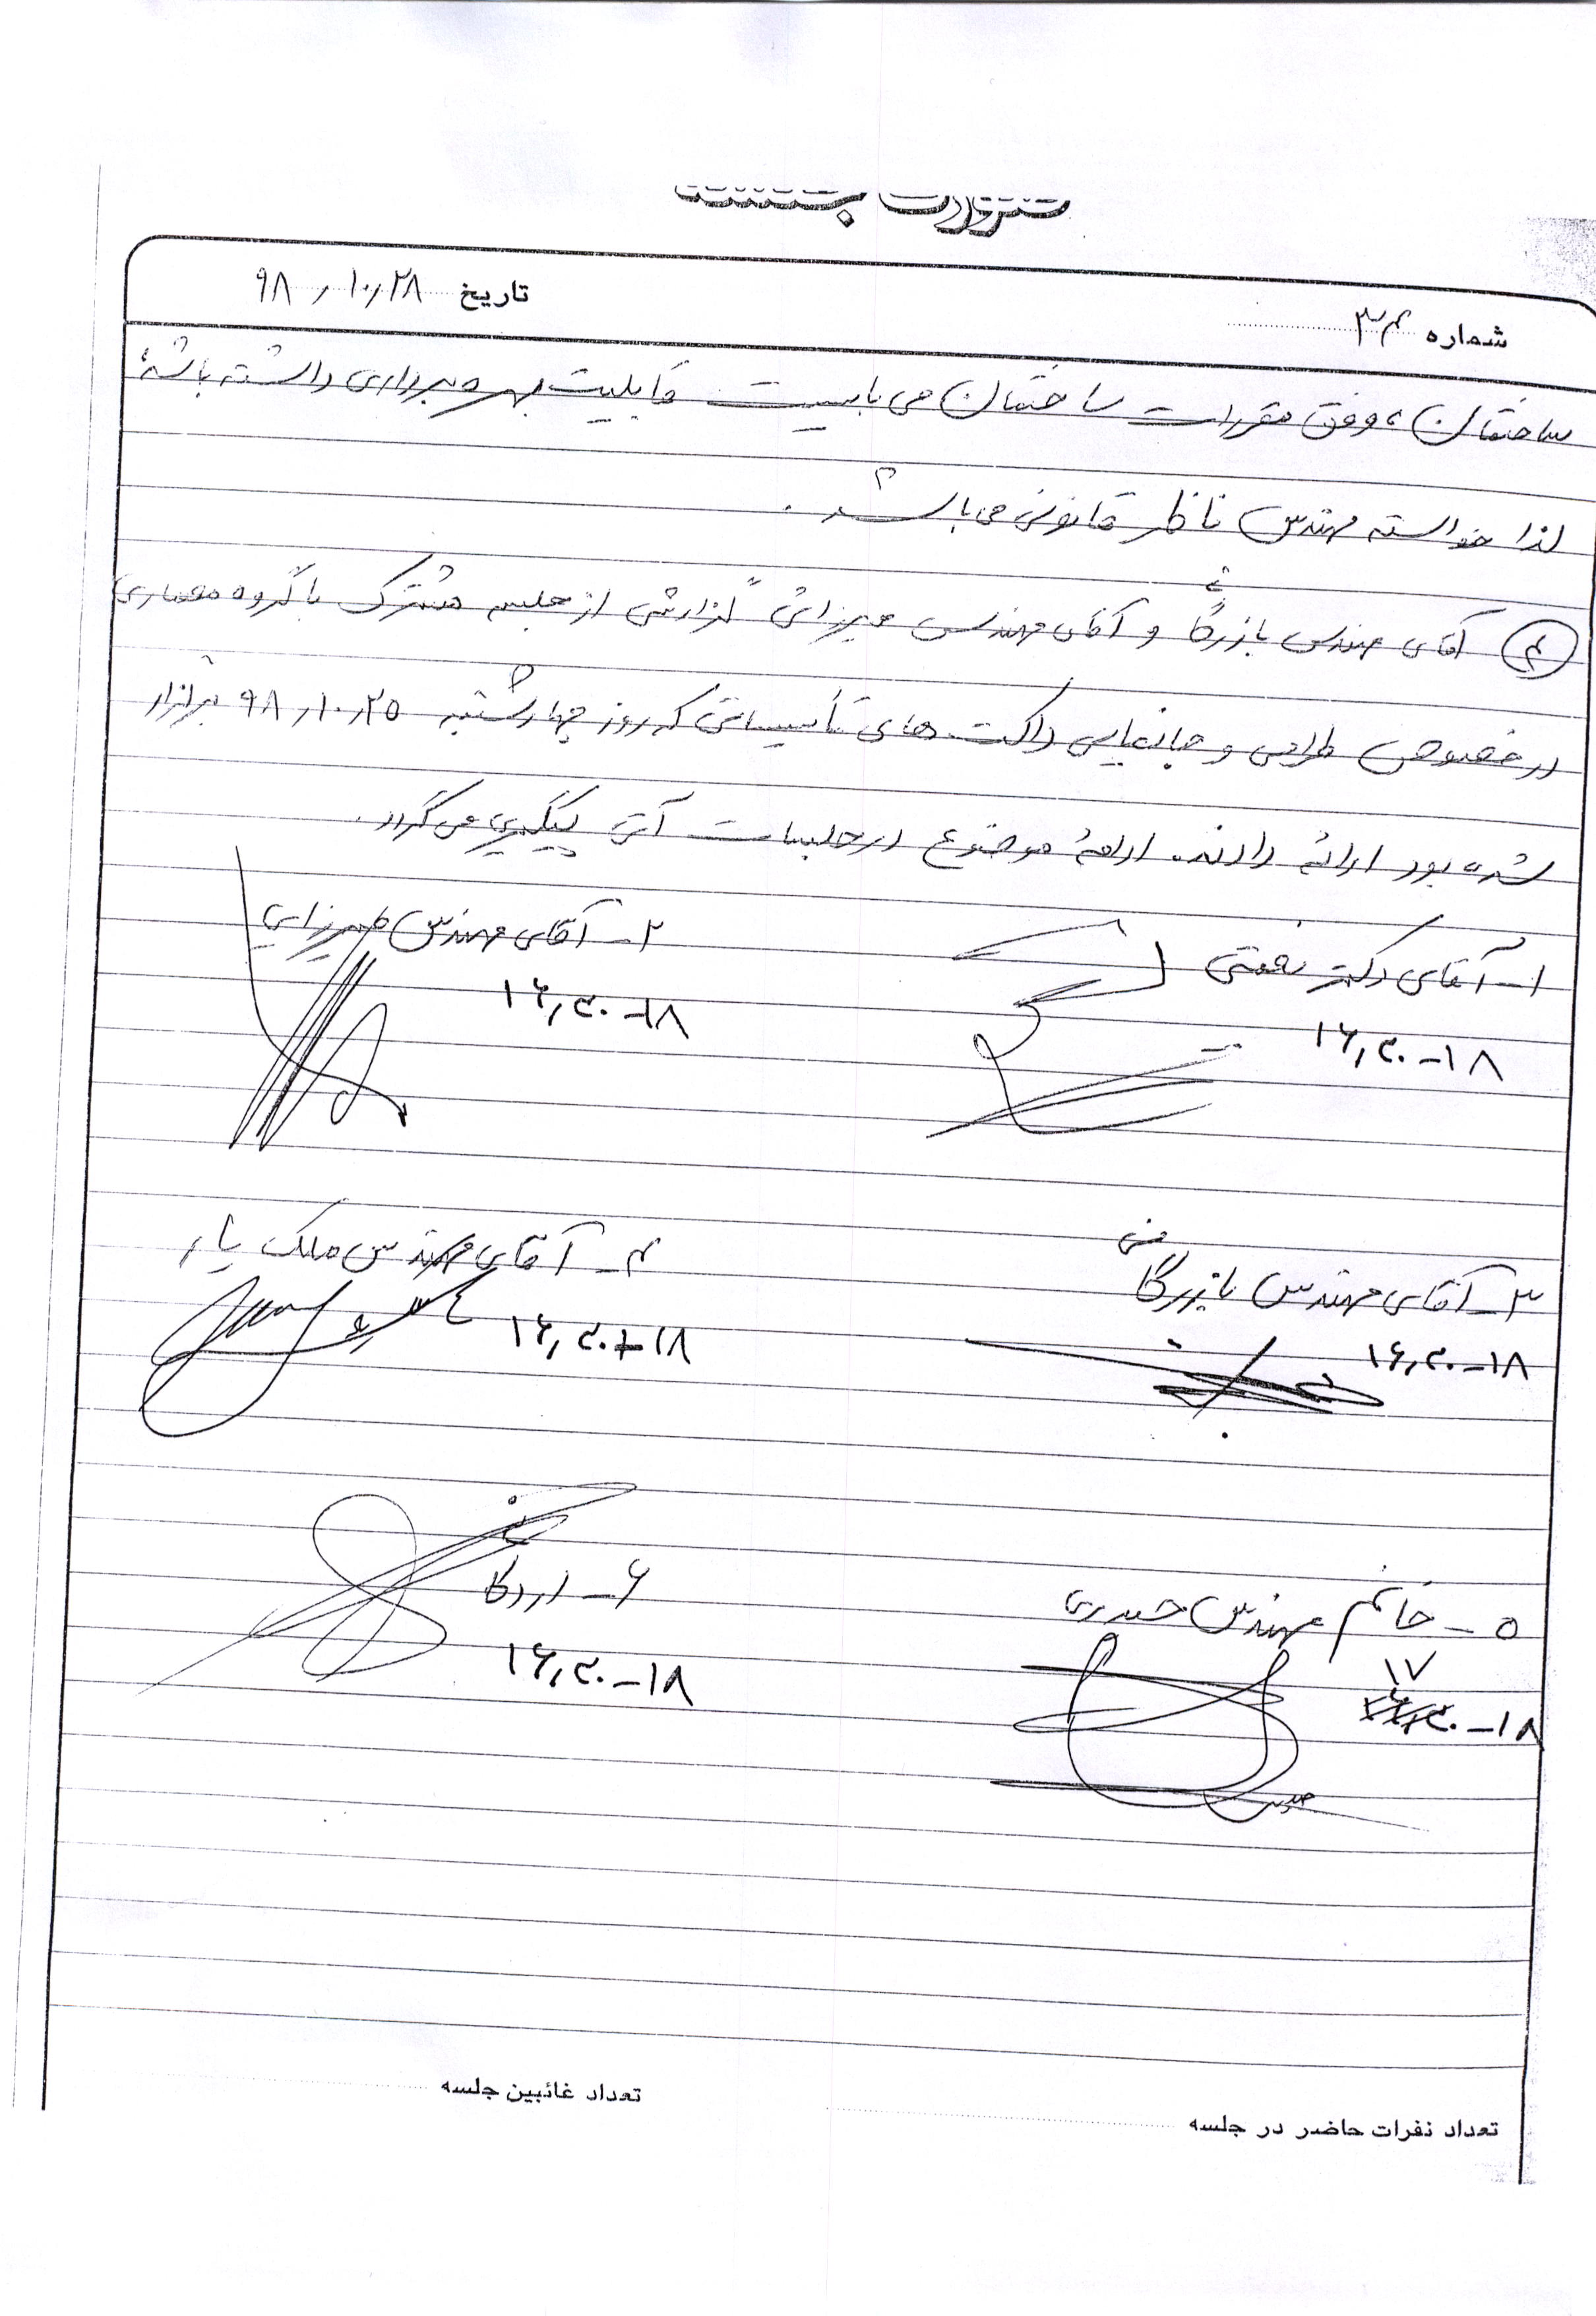 شماره ۳۴
تاریخ ۹۸٫۱۰٫۲۸
ساختمان، وفق مقررات ساختمان می بایست قابلیت بهره برداری داشته باشد
لذا خواسته مهندس ناظر قانونی می باشد.
۴ آقای مهندس بازرگان و آقای مهندس میرزائی گزارشی از جلسه مشترک با گروه معماری
در خصوص طراحی و جانمایی داکت های تأسیساتی که روز چهارشنبه ۹۸٫۱۰٫۲۵ برگزار
شده بود ارائه دادند. ادامه موضوع در جلسات آتی پیگیری می گردد.
۱- آقای دکتر نعمتی
۱۶٫۳۰-۱۸
۲- آقای مهندس میرزایی
۱۶٫۳۰-۱۸
۳- آقای مهندس بازرگان
۱۶٫۳۰-۱۸
۴- آقای مهندس ملک یار
۱۶٫۳۰-۱۸
۵- خانم مهندس حیدری
۱۷
-۱۸
۶-
۱۶٫۳۰-۱۸
تعداد نفرات حاضر در جلسه
تعداد غائبین جلسه